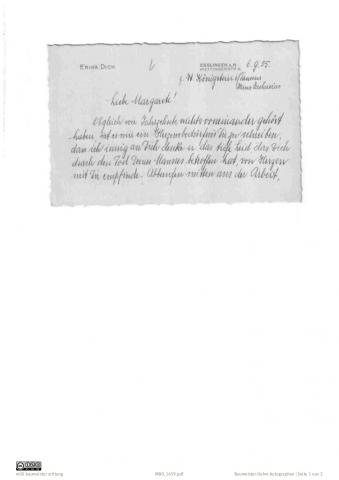 ERIKA DICK
ESSLINGEN A.N.
6.9.55.
z. Zt. Königstein i/Taunus
Liebe Margarete!
Obgleich wir Jahrzehnte nichts voneinander gehört
haben, ist es mir ein Herzensbedürfnis Dir zu schreiben,
dass ich innig an Dich denke u. das tiefe Leid das Dich
durch den Tod Deines Mannes betroffen hat, von Herzen
mit Dir empfinde. Abberufen mitten aus der Arbeit,
willi baumeister stiftung
Baumeister-Rehm Autographen | Seite 1 von 2